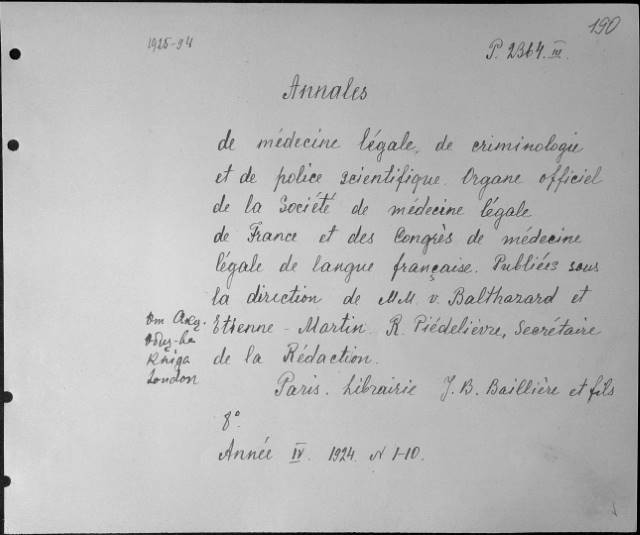 190
1925-94
P. 2364.III.
Annales
de médecine légale, de criminologie
et de police scientifique. Organe officiel
de la Société de médecine légale
de France et des Congrès de médecine
légale de langue française. Publiées sous
la direction de MM. v. Balthazard et
Etienne-Martin. R. Piédelièvre, Secrétaire
de la Rédaction.
Kniga
London
Paris. Librairie J. B. Baillière et fils
8°
Année IV. 1924. N 1-10.